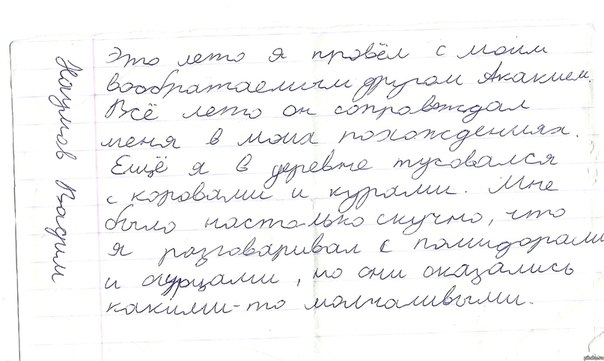 Наумов Вадим
Это лето я провёл с моим
воображаемым другом Акакием.
Всё лето он сопровождал
меня в моих похождениях.
Ещё я в деревне тусовался
с коровами и курами. Мне
было настолько скучно, что
я разговаривал с помидорами
и огурцами, но они оказались
какими-то молчаливыми.
pikabu.ru